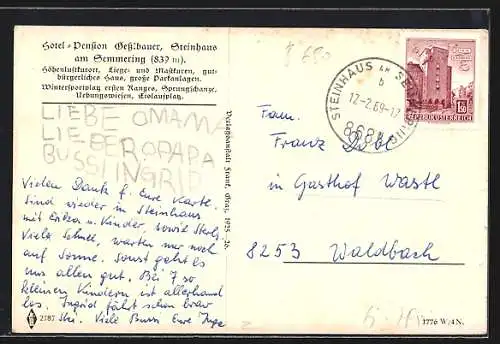 Hotel-Pension Geßlbauer, Steinhaus
am Semmering (839 m).
Höhenluftkurort, Liege- und Mastkuren, gut-
bürgerliches Haus, große Parkanlagen.
Wintersportplatz ersten Ranges, Sprungschanze,
Uebungswiesen, Eislaufplatz.
LIEBE OMAMA
LIEBER OPAPA
BUSSI INGRID
Vielen Dank f. Eure Karte.
Sind wieder in Steinhaus
mit Erika u. Kinder, sowie
Viele Schnee, warten nur noch
auf Sonne. Sonst geht es
uns allen gut. Bei 7 so
kleinen Kindern ist allerhand
los. Ingrid fährt schon brav
Ski. Viele Bussi Eure Inge
2187
Frank, Graz, 1925.
STEINHAUS AM SEMMERING
b
12-2.69-17
8684
1.50
REPUBLIK ÖSTERREICH
Fam.
Franz
in Gasthof Wastl
8253 Waldbach
1776 W/4N.